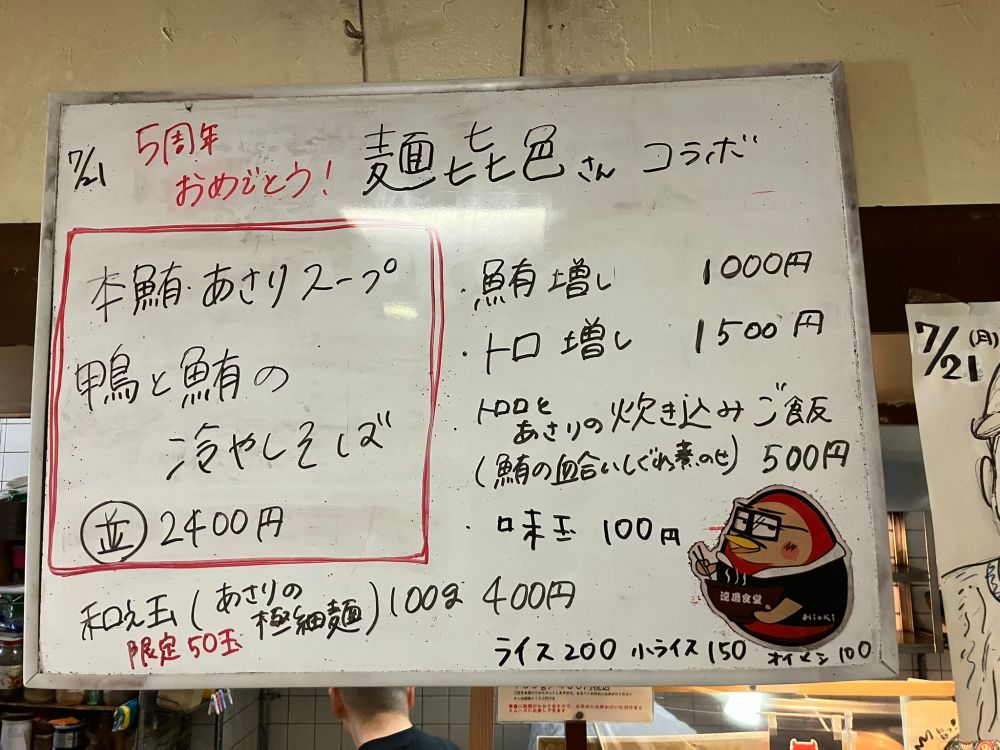 7/21
5周年
おめでとう!
麺㐂色さん コラボ
本鮪・あさりスープ
鴨と鮪の
冷やしそば
並 2400円
和え玉(あさりの極細麺)100g 400円
限定50玉
・鮪増し 1000円
・トロ増し 1500円
・トロロと
あさりの炊き込みご飯
(鮪の血合いしぐれ煮のせ) 500円
・味玉 100円
達磨食堂
HiaKi
ライス200 小ライス150 オイメシ100
7/21(月)